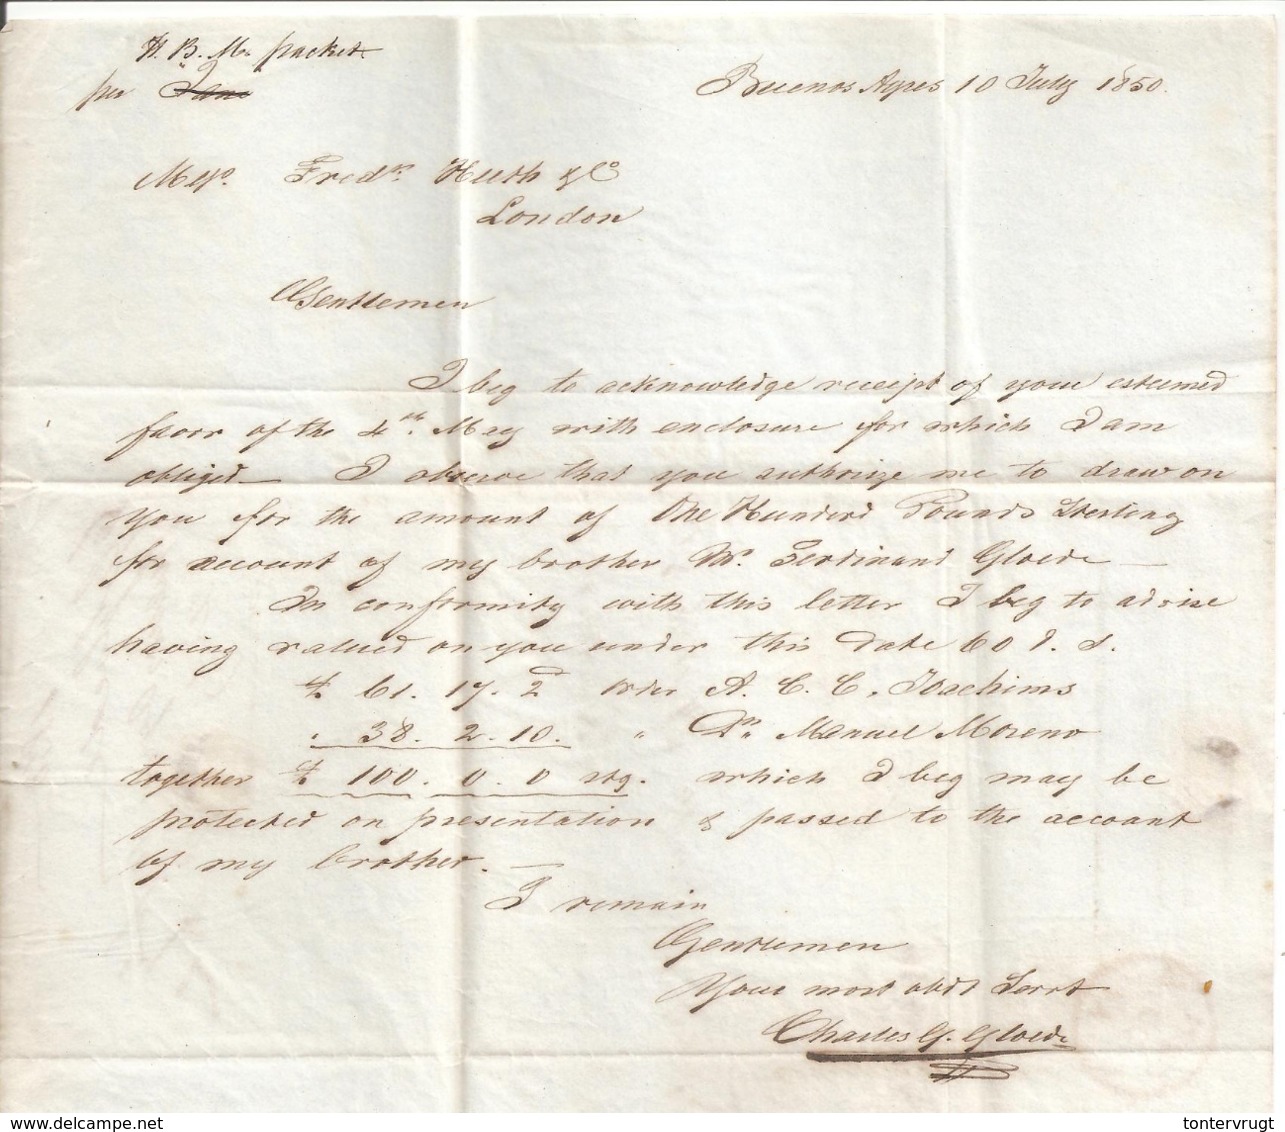 H. B. M. packet
per
Buenos Ayres 10 July 1850.
Messrs. Fredk. Huth & Co
London
Gentlemen
I beg to acknowledge receipt of your esteemed
favor of the 4th. May with enclosure for which I am
obliged — I observe that you authorize me to draw on
you for the amount of One Hunderd Pounds Sterling
for account of my brother Mr. Ferdinand Gloede —
In conformity with this letter I beg to advise
having valued on you under this date 60 d. s.
£ 61. 17. 2 order A. C. C. Joachims
" 38. 2. 10. " Dn. Manuel Moreno
together £ 100. 0. 0 stg. which I beg may be
protected on presentation & passed to the account
of my brother. —
I remain
Gentlemen
Your most obdt Servt
Charles G. Gloede
www.delcampe.net
tontervrugt